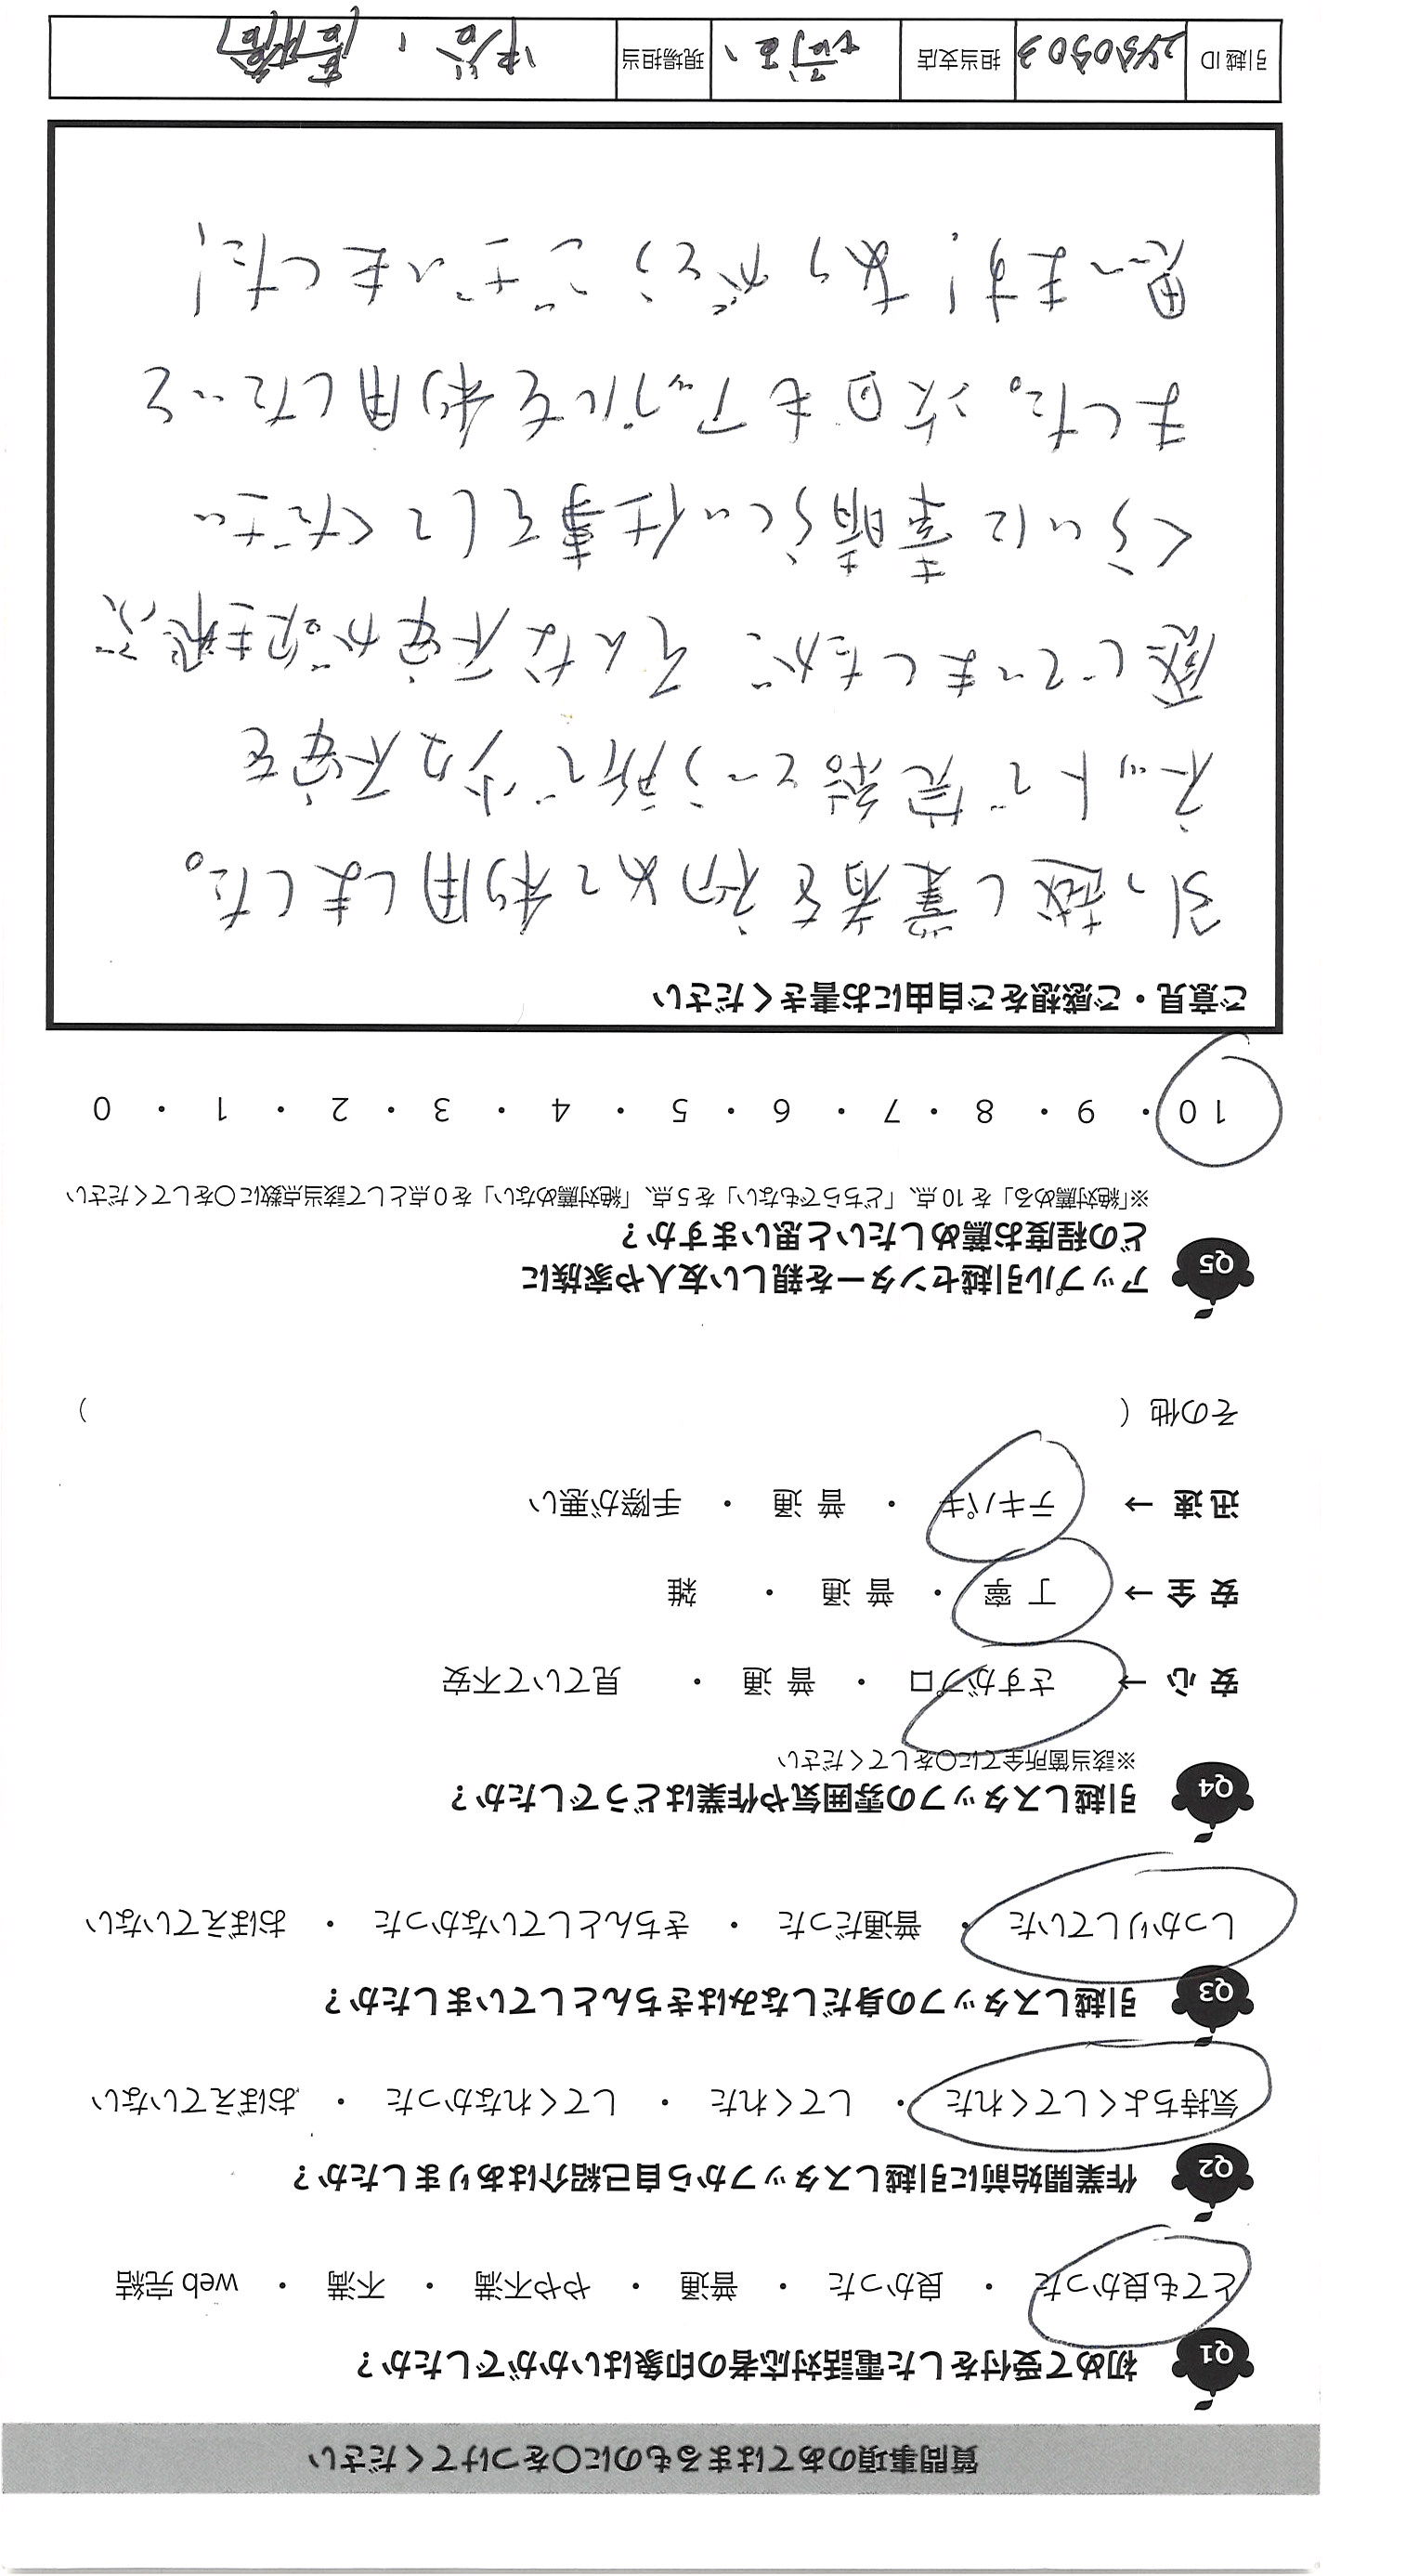 質問事項のあてはまるものに〇をつけてください
Q1 初めて受付をした電話対応者の印象はいかがでしたか？
とても良かった ・ 良かった ・ 普通 ・ やや不満 ・ 不満 ・ web 完結
Q2 作業開始前に引越しスタッフから自己紹介はありましたか？
気持ちよくしてくれた ・ してくれた ・ してくれなかった ・ おぼえていない
Q3 引越しスタッフの身だしなみはきちんとしていましたか？
しっかりしていた ・ 普通だった ・ きちんとしていなかった ・ おぼえていない
Q4 引越しスタッフの雰囲気や作業はどうでしたか？
※該当箇所全てに〇をしてください
安 心 → さすがプロ ・ 普 通 ・ 見ていて不安
安 全 → 丁 寧 ・ 普 通 ・ 雑
迅 速 → テキパキ ・ 普 通 ・ 手際が悪い
その他（ ）
Q5 アップル引越センターを親しい友人や家族に
どの程度お薦めしたいと思いますか？
※「絶対薦める」を 10 点、「どちらでもない」を 5 点、「絶対薦めない」を 0 点として該当点数に〇をしてください
10 ・ 9 ・ 8 ・ 7 ・ 6 ・ 5 ・ 4 ・ 3 ・ 2 ・ 1 ・ 0
ご意見・ご感想をご自由にお書きください
引っ越し業者を初めて利用しました。
ネットで完結という所で少々不安を
感じていましたが、そんな不安が吹き飛ぶ
くらいに素晴らしい仕事をしてください
ました。次回もアップルを利用したいと
思います！ありがとうございました！
引越 ID 担当支店 現場担当